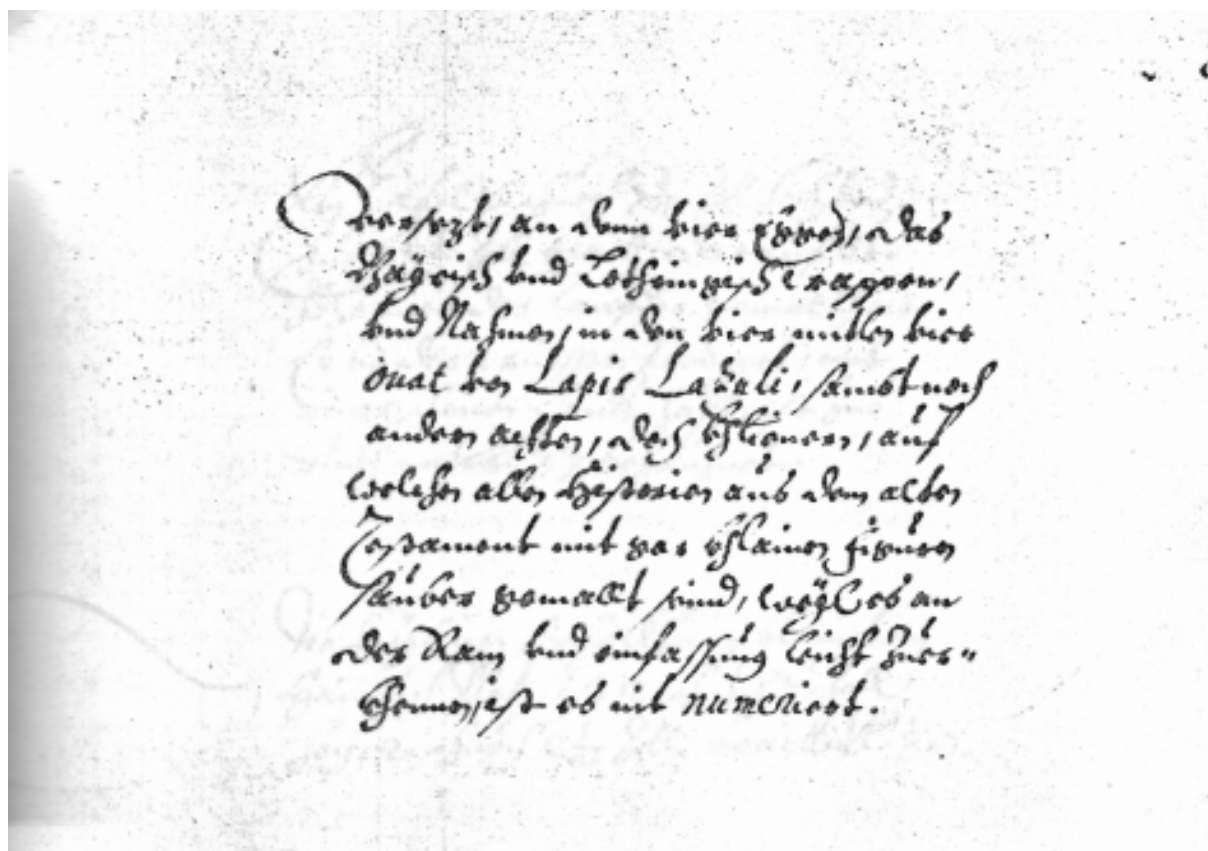 versezt, an denn vier Eggen, das
Bayrisch vnd Lothringisch Wappen,
vnd Nahmen, in den vier mitlen vier
ouat von Lapis Lazuli, sambt noch
andern achten, doch khlienern, auf
welchen allen Historien aus dem alten
Testament mit gar khlainen figuren
sauber gemallt seind, weyl es an
der Ram vnd einfassung leicht zuer=
khennen, ist es nit numeriert.